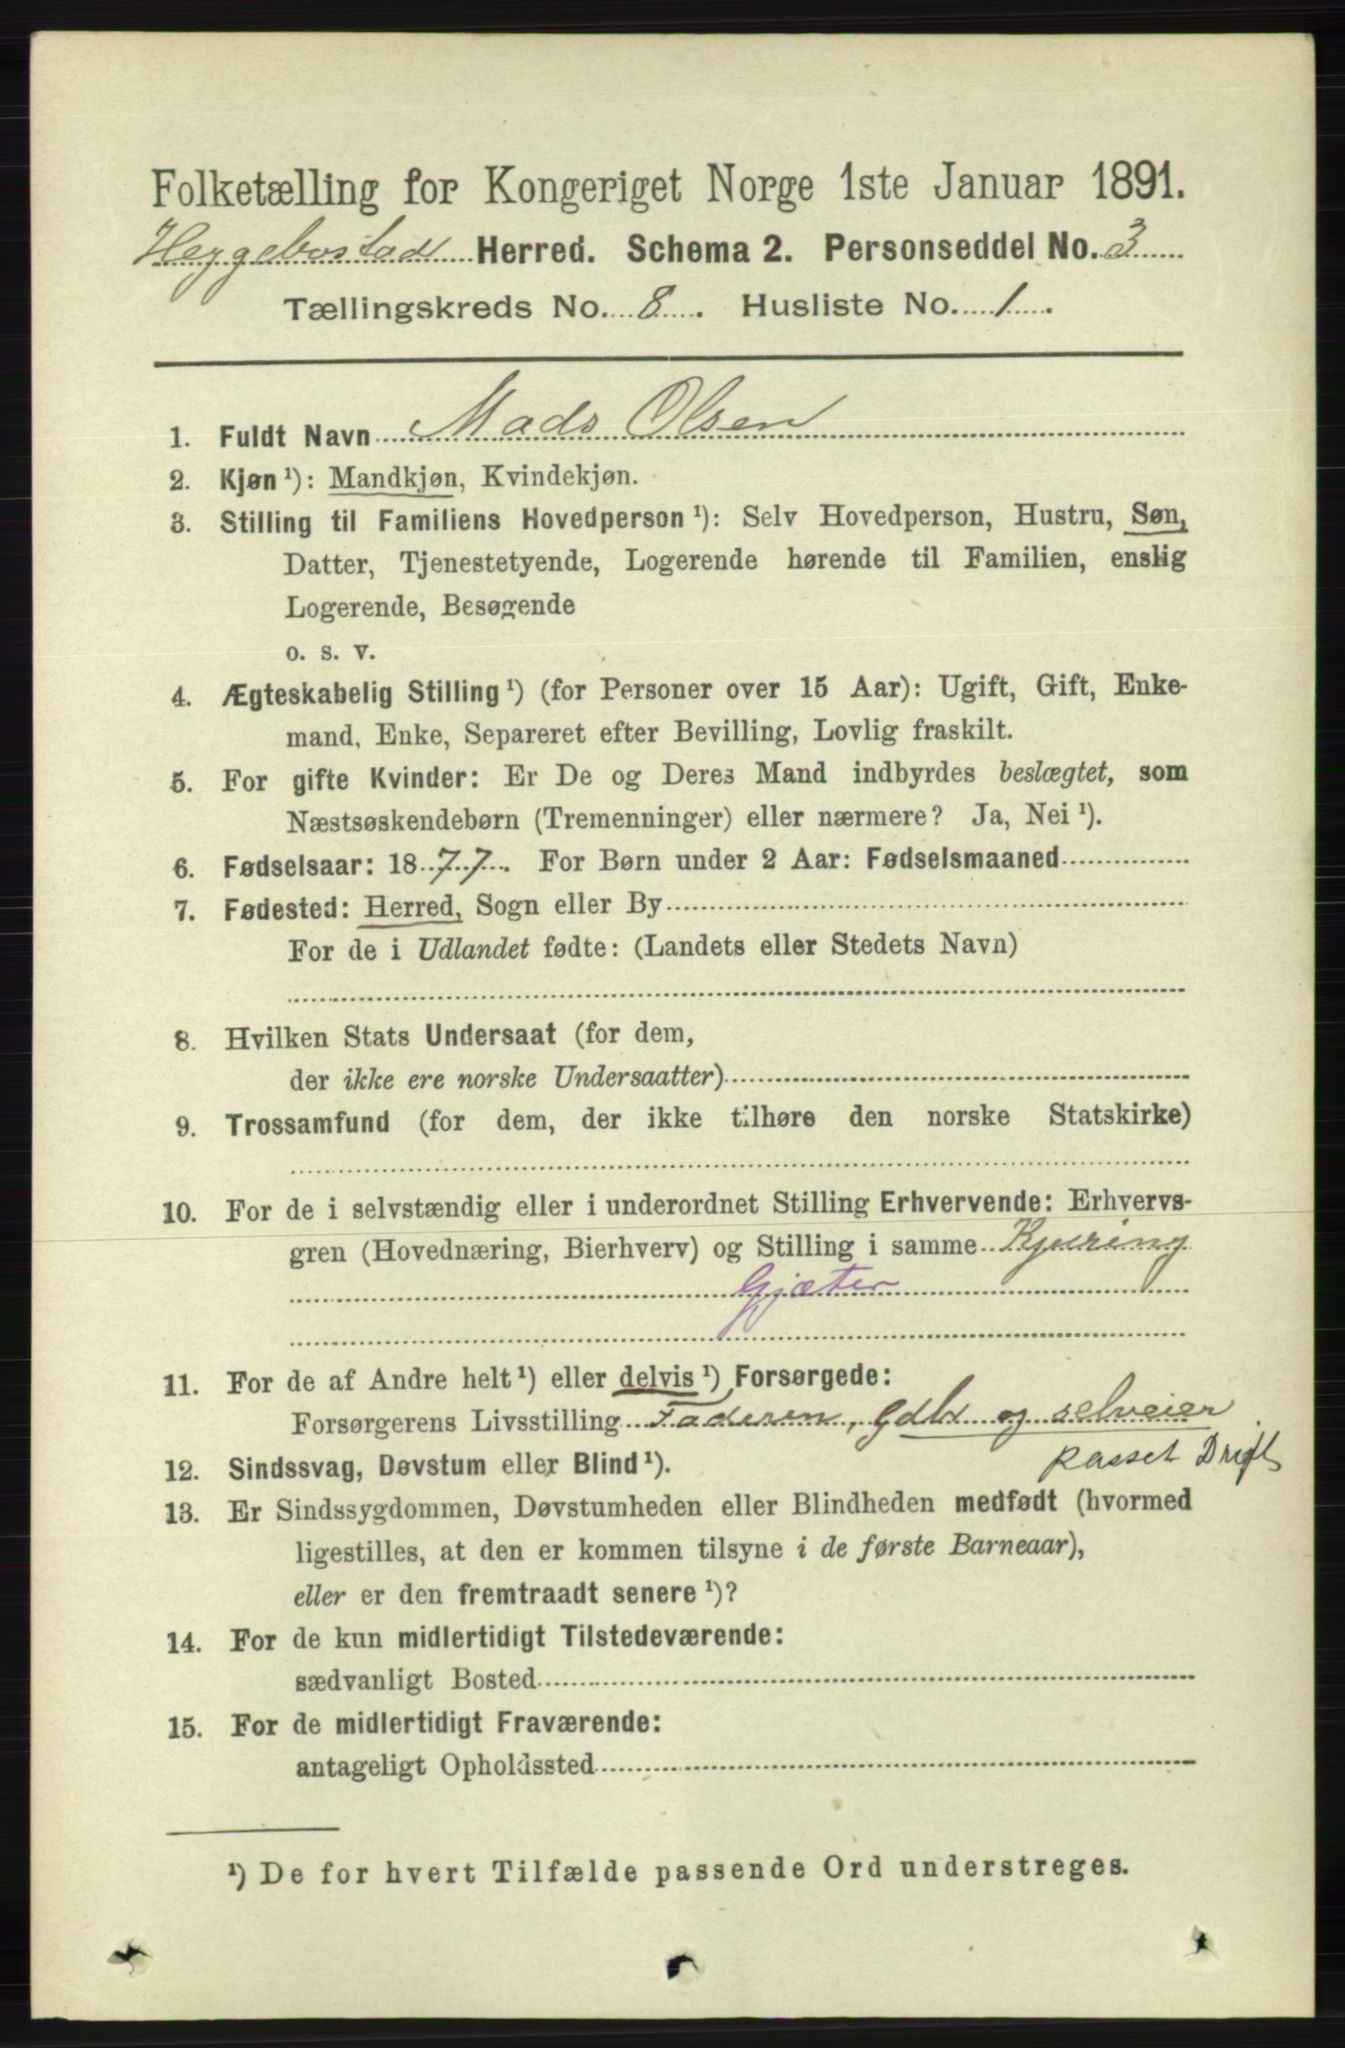 Folketælling for Kongeriget Norge 1ste Januar 1891.
Heggebostad Herred. Schema 2. Personseddel No. 3
Tællingskreds No. 8. Husliste No. 1.
1. Fuldt Navn Mads Olsen
2. Kjøn ¹): Mandkjøn, Kvindekjøn.
3. Stilling til Familiens Hovedperson ¹): Selv Hovedperson, Hustru, Søn,
Datter, Tjenestetyende, Logerende hørende til Familien, enslig
Logerende, Besøgende
o. s. v.
4. Ægteskabelig Stilling ¹) (for Personer over 15 Aar): Ugift, Gift, Enke-
mand, Enke, Separeret efter Bevilling, Lovlig fraskilt.
5. For gifte Kvinder: Er De og Deres Mand indbyrdes beslægtet, som
Næstsøskendebørn (Tremenninger) eller nærmere? Ja, Nei ¹).
6. Fødselsaar: 1877. For Børn under 2 Aar: Fødselsmaaned
7. Fødested: Herred, Sogn eller By
For de i Udlandet fødte: (Landets eller Stedets Navn)
8. Hvilken Stats Undersaat (for dem,
der ikke ere norske Undersaatter)
9. Trossamfund (for dem, der ikke tilhøre den norske Statskirke)
10. For de i selvstændig eller i underordnet Stilling Erhvervende: Erhvervs-
gren (Hovednæring, Bierhverv) og Stilling i samme Kjuring
Gjæter
11. For de af Andre helt ¹) eller delvis ¹) Forsørgede:
Forsørgerens Livsstilling Faderen, Gdbr og selveier
12. Sindssvag, Døvstum eller Blind ¹). Drift
13. Er Sindssygdommen, Døvstumheden eller Blindheden medfødt (hvormed
ligestilles, at den er kommen tilsyne i de første Barneaar),
eller er den fremtraadt senere ¹)?
14. For de kun midlertidigt Tilstedeværende:
sædvanligt Bosted
15. For de midlertidigt Fraværende:
antageligt Opholdssted
¹) De for hvert Tilfælde passende Ord understreges.